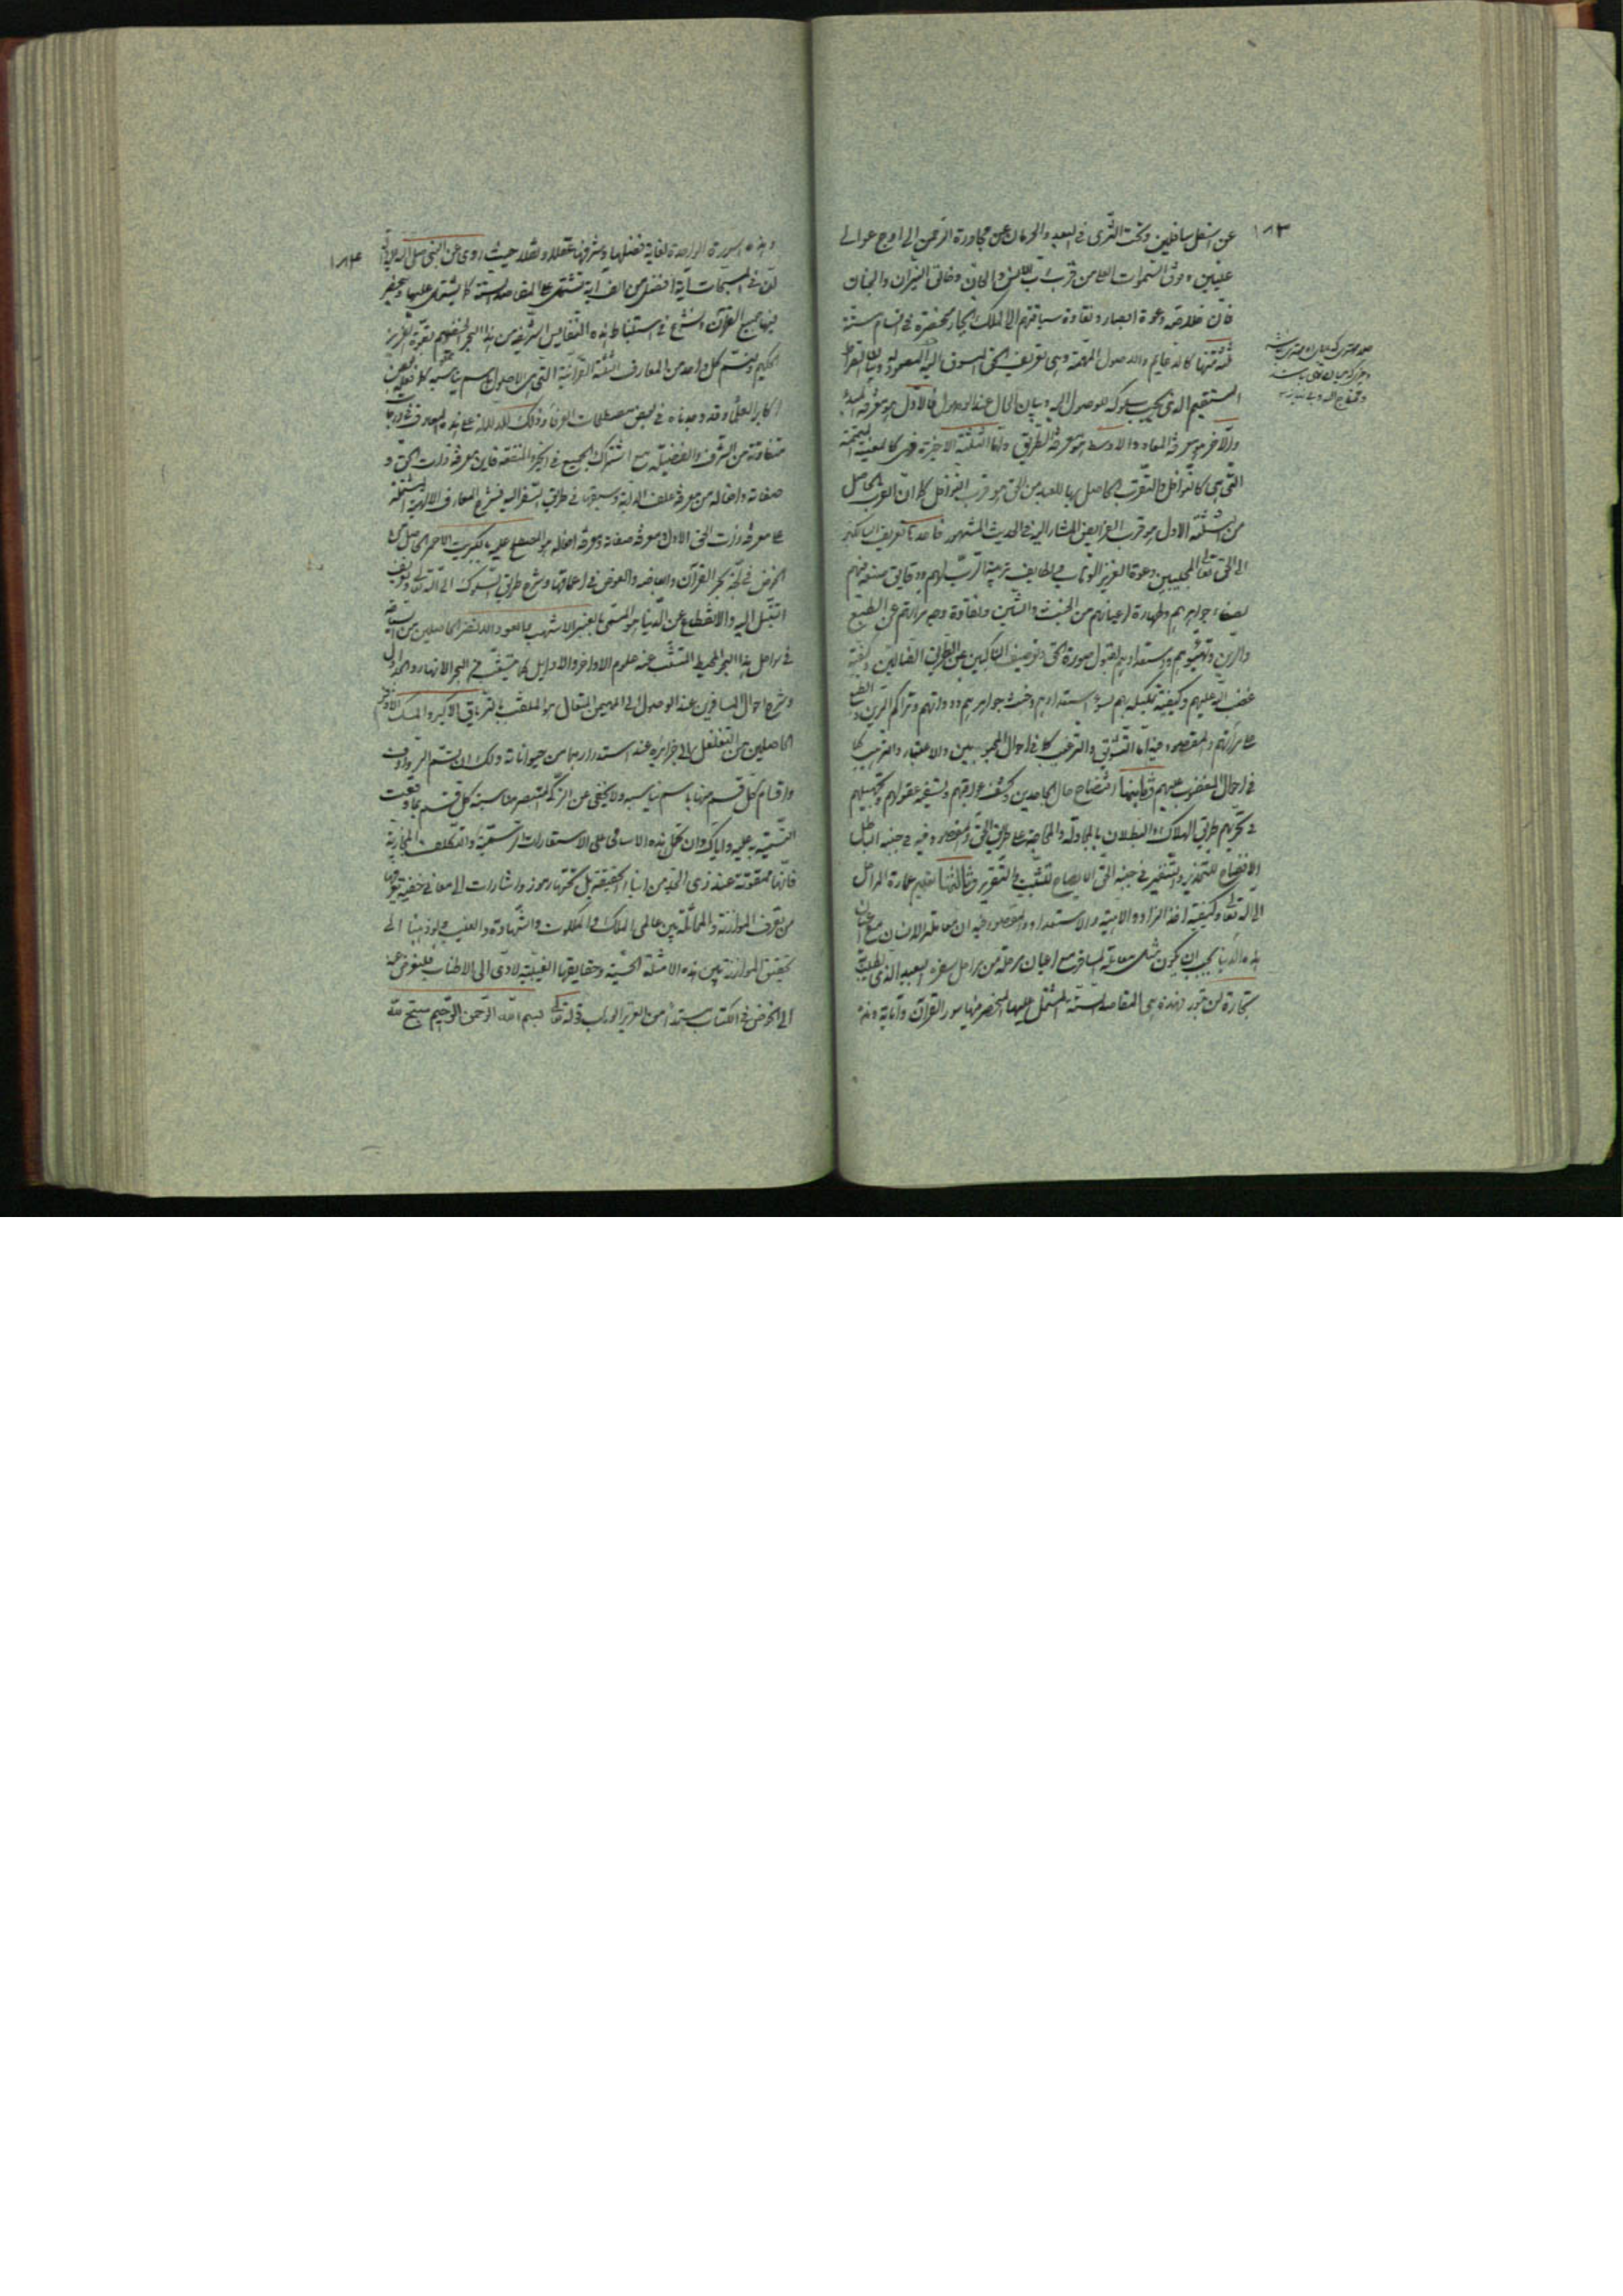 ١٨٣
عن اسفل سافلين وتحت الثرى فى البعد والحرمان عن مجاورة الرحمن الى اوج عوالى
عليين وفوق السموات العلى من قرب رب الانس والجان وخالق النيران والجنان
فان خلاصة دعوة العباد ونقاوة سياقتهم الى الملك الجبار منحصرة فى اقسام ستة
ثلثة منها كالدعايم والاصول المهمة وهى تعريف الحق المسوق اليه المصمود وبيان الصراط
المستقيم الذى يجب سلوكه للوصول اليه وبيان الحال عند الوصول فالاول هو معرفة المبدء
والآخر هو معرفة المعاد والاوسط هو معرفة الطريق واما الثلثة الاخيرة فهى كالمعينة المتممة
التى هى كالنوافل والتقرب الحاصل بها للعبد من الحق هو قرب النوافل كما ان القرب الحاصل
من الثلثة الاول هو قرب الفرايض المشار اليه فى الحديث المشهور فاحدها تعريف السالكين
الى الحق تعالى المجيبين دعوة العزيز الوهاب ولطايف تربية الرب لهم ودقايق صنعه فيهم
بصفاء جواهرهم وطهارة اعيانهم من الخبث والشين ونقاوة وجه مرآتهم عن الطبع
والرين وتهيؤهم واستعدادهم لقبول صورة الحق وتوصيف الناكبين عن الطريق الضالين وكيفية
غضب الله عليهم وكيفية تنكيله بهم لسوء استعدادهم وخبث جواهرهم وذواتهم وتراكم الرين والطبع
على مرآتهم والمقصود فيه اما التشويق والترغيب كما فى احوال المحبوبين والاعتبار والترهيب كما
فى احوال المغضوب عليهم وثانيها افتضاح حال الجاحدين وكشف عوراتهم وتسفيه عقولهم وتجهيلهم
فى تحريهم طريق الهلاك والبطلان بالمجادلة والمحاجة على طريق الحق والمقصود فيه فى جنبة الباطل
الافضاح للتحذير والتنفير وفى جنبة الحق الايضاح للتثبيت والتقرير وثالثها تعليم عمارة المراحل
الى الله تعالى وكيفية اخذ الزاد والاهبة والاستعداد والمقصود فيه ان معاملة الانسان مع اعيان
هذه الدنيا يجب ان يكون مثل معاملة المسافر مع اعيان مرحلة من مراحل سفره البعيد الذى يطلب فيه
تجارة لن تبور فهذه هى المقاصد الستة المشتمل عليها المنحصر فيها سور القرآن وآياته وهذه
١٨٤
وهذه السورة الواحدة لغاية فضلها وشرفها عقلا ونقلا حيث روى عن النبى صلى الله عليه وآله
ان فى المسبحات آية افضل من الف آية تشتمل على المقاصد الستة كما يشتمل عليها وينحصر
فيها جميع القرآن ولنشرع فى استنباط هذه النفايس الشريفة من هذا البحر الخضم بقوة العزيز
الحكيم ولنسم كل واحد من المعارف الثلثة القرآنية التى هى الاصول باسم يناسبه كما فعله بعض
اكابر العلماء وقد وجدناه فى بعض مصطلحات العرفاء وذلك للدلالة على ان هذه المعارف على درجات
متفاوتة من الشرف والفضيلة مع اشتراك الجميع فى الخير والمنفعة فاين معرفة ذات الحق و
صفاته وافعاله من معرفة علف الدابة وسقيها فى طريق السفر اليه فشرح المعارف الالهية المشتملة
على معرفة ذات الحق الاول ومعرفة صفاته ومعرفة افعاله هو المصطلح عليه بالكبريت الاحمر الحاصل من
الخوض فى لجة بحر القرآن وابعاضه والغوص فى اعماقها وشرح طريق السلوك الى الله تعالى وتعريف
التبتل اليه والانقطاع عن الدنيا هو المسمى بالعنبر الاشهب والعود الاخضر الحاصلين من السياحة
فى سواحل هذا البحر المحيط المتشعب عنه علوم الاواخر والاوايل كما يتشعب من البحر الانهار والجداول
وشرح احوال المسافرين عند الوصول الى المهيمن المتعال هو الملقب بالترياق الاكبر والمسك الاذفر
الحاصلين من التغلغل الى جزائره عند استدرارهما من حيواناته ولك ان تسم الروادف
واقسام كل قسم منها باسم يناسبه ولا يخفى عن الزكى المتبصر مناسبة كل قسم بما وقعت
التسمية به عليه واياك وان تحمل هذه الاسامى على الاستعارات الرسمية والتكلفات المجازية
فانها ممقوتة عند ذوى الجد من ابناء الحقيقة بل تحتها رموز واشارات الى معانى خفية يعرفها
من يعرف الموازنة والمماثلة بين عالمى الملك والملكوت والشهادة والغيب ولو ذهبنا الى
تحقيق الموازنة بين هذه الامثلة الحسية وحقايقها الغيبية لادى الى الاطناب فلنعرض عنه
الى الخوض فى الكتاب مستمدا من العزيز الوهاب قوله تعالى بسم الله الرحمن الرحيم سبح لله